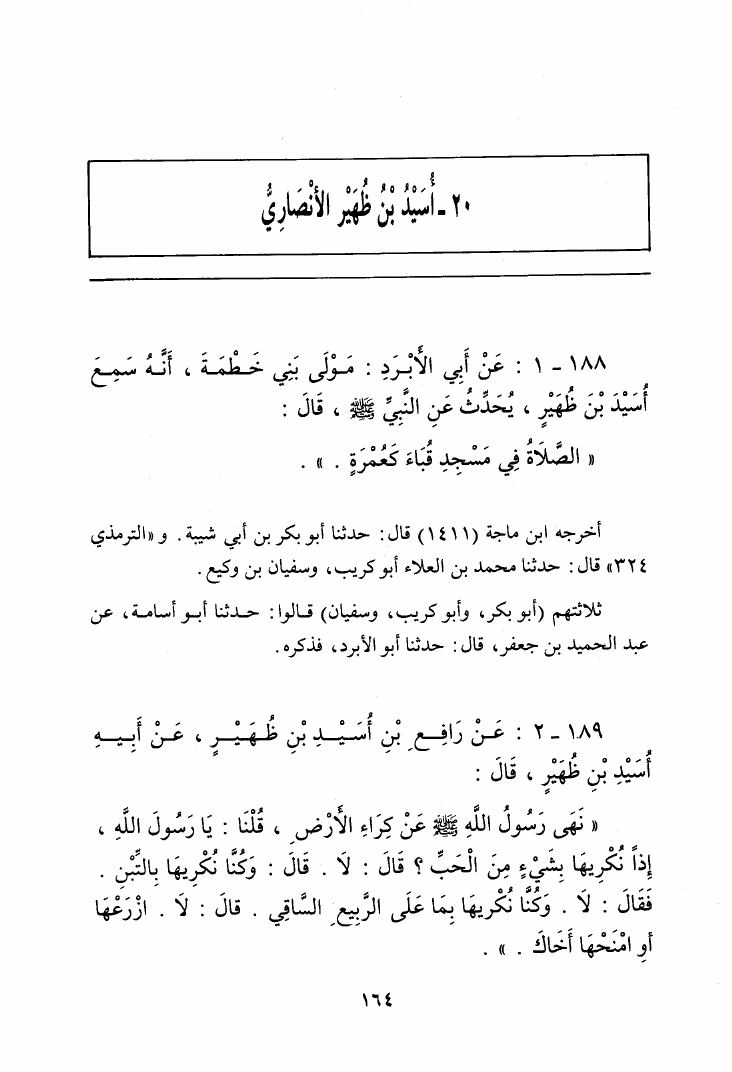 ٢٠ - أُسَيْدُ بْنُ ظُهَيْرِ الأَنْصَارِيُّ
١٨٨ - ١ : عَنْ أَبِي الأَبْرَدِ : مَوْلَى بَنِي خَطْمَةَ ، أَنَّهُ سَمِعَ
أُسَيْدَ بْنَ ظُهَيْرٍ ، يُحَدِّثُ عَنِ النَّبِيِّ ﷺ ، قَالَ :
« الصَّلَاةُ فِي مَسْجِدِ قُبَاءَ كَعُمْرَةٍ . » .
أخرجه ابن ماجة (١٤١١) قال: حدثنا أبو بكر بن أبي شيبة. و«الترمذي
٣٢٤» قال: حدثنا محمد بن العلاء أبو كريب، وسفيان بن وكيع.
ثلاثتهم (أبو بكر، وأبو كريب، وسفيان) قالوا: حدثنا أبو أسامة، عن
عبد الحميد بن جعفر، قال: حدثنا أبو الأبرد، فذكره.
١٨٩ - ٢ : عَنْ رَافِعِ بْنِ أُسَيْدِ بْنِ ظُهَيْرٍ ، عَنْ أَبِيهِ
أُسَيْدِ بْنِ ظُهَيْرٍ ، قَالَ :
« نَهَى رَسُولُ اللَّهِ ﷺ عَنْ كِرَاءِ الأَرْضِ ، قُلْنَا : يَا رَسُولَ اللَّهِ ،
إِذاً نُكْرِيهَا بِشَيْءٍ مِنَ الْحَبِّ ؟ قَالَ : لَا . قَالَ : وَكُنَّا نُكْرِيهَا بِالتِّبْنِ .
فَقَالَ : لَا . وَكُنَّا نُكْرِيهَا بِمَا عَلَى الرَّبِيعِ السَّاقِي . قَالَ : لَا . ازْرَعْهَا
أَوِ امْنَحْهَا أَخَاكَ . » .
١٦٤